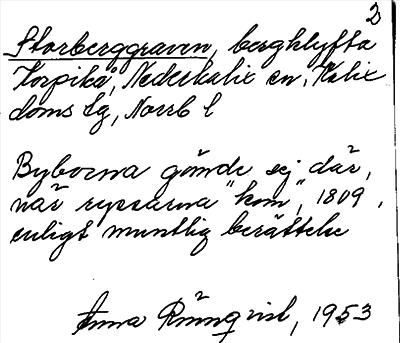 2
Storberggraven, bergklyfta
Korpikå, Nederkalix sn, Kalix
doms lg, Norrb l
Byborna gömde sej där,
när ryssarna "kom", 1809,
enligt muntlig berättelse
Anna Rönnqvist, 1953